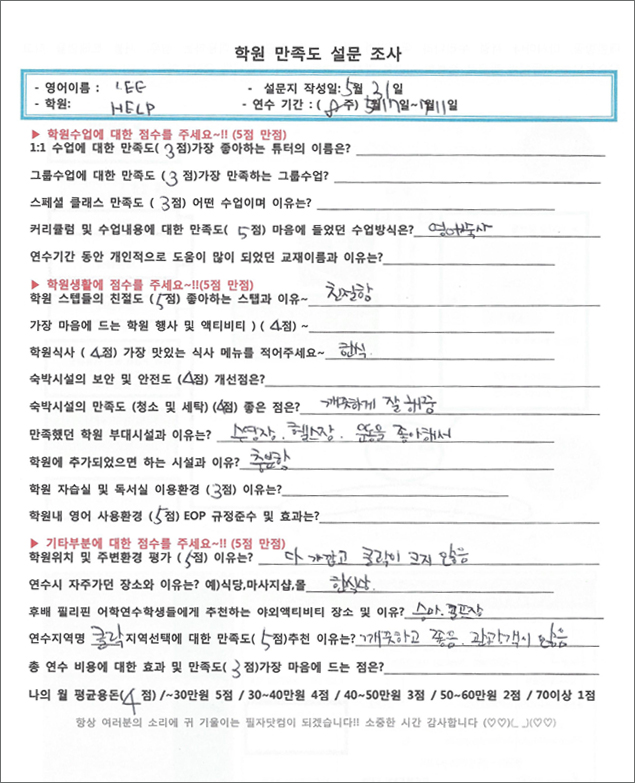 학원 만족도 설문 조사
- 영어이름 : LEE - 설문지 작성일: 5월 31일
- 학원: HELP - 연수 기간 : ( 8 주) 5월 17일~7월 11일
▶ 학원수업에 대한 점수를 주세요~!! (5점 만점)
1:1 수업에 대한 만족도( 3 점)가장 좋아하는 튜터의 이름은?
그룹수업에 대한 만족도( 3 점)가장 만족하는 그룹수업?
스페셜 클래스 만족도 ( 3점) 어떤 수업이며 이유는?
커리큘럼 및 수업내용에 대한 만족도( 5점) 마음에 들었던 수업방식은?
연수기간 동안 개인적으로 도움이 많이 되었던 교재이름과 이유는?
▶ 학원생활에 점수를 주세요~!!(5점 만점)
학원 스텝들의 친절도 (5점) 좋아하는 스탭과 이유~ 친절함
가장 마음에 드는 학원 행사 및 액티비티 ) ( 4점) ~
학원식사 ( 4점) 가장 맛있는 식사 메뉴를 적어주세요~ 한식.
숙박시설의 보안 및 안전도 (4점) 개선점은?
숙박시설의 만족도 (청소 및 세탁) (4점) 좋은 점은? 깨끗하게 잘 해줌
만족했던 학원 부대시설과 이유는? 수영장. 헬스장. 운동을 좋아해서
학원에 추가되었으면 하는 시설과 이유? 충분함
학원 자습실 및 독서실 이용환경 (3점) 이유는?
학원내 영어 사용환경 (5점) EOP 규정준수 및 효과는?
▶ 기타부분에 대한 점수를 주세요~!! (5점 만점)
학원위치 및 주변환경 평가 (5점) 이유는? 다 가깝고 클락이 크지 않음
연수시 자주가던 장소와 이유는? 예)식당,마사지샵,몰 한식당.
후배 필리핀 어학연수학생들에게 추천하는 야외액티비티 장소 및 이유? 승마. 골프장
연수지역명 클락 지역선택에 대한 만족도( 5점)추천 이유는? 깨끗하고 좋음. 관광객이 않음
총 연수 비용에 대한 효과 및 만족도( 3점)가장 마음에 드는 점은?
나의 월 평균용돈( 4 점) /~30만원 5점 / 30~40만원 4점 / 40~50만원 3점 / 50~60만원 2점 / 70이상 1점
항상 여러분의 소리에 귀 기울이는 필자닷컴이 되겠습니다!! 소중한 시간 감사합니다 (♡♡)(_ _)(♡♡)